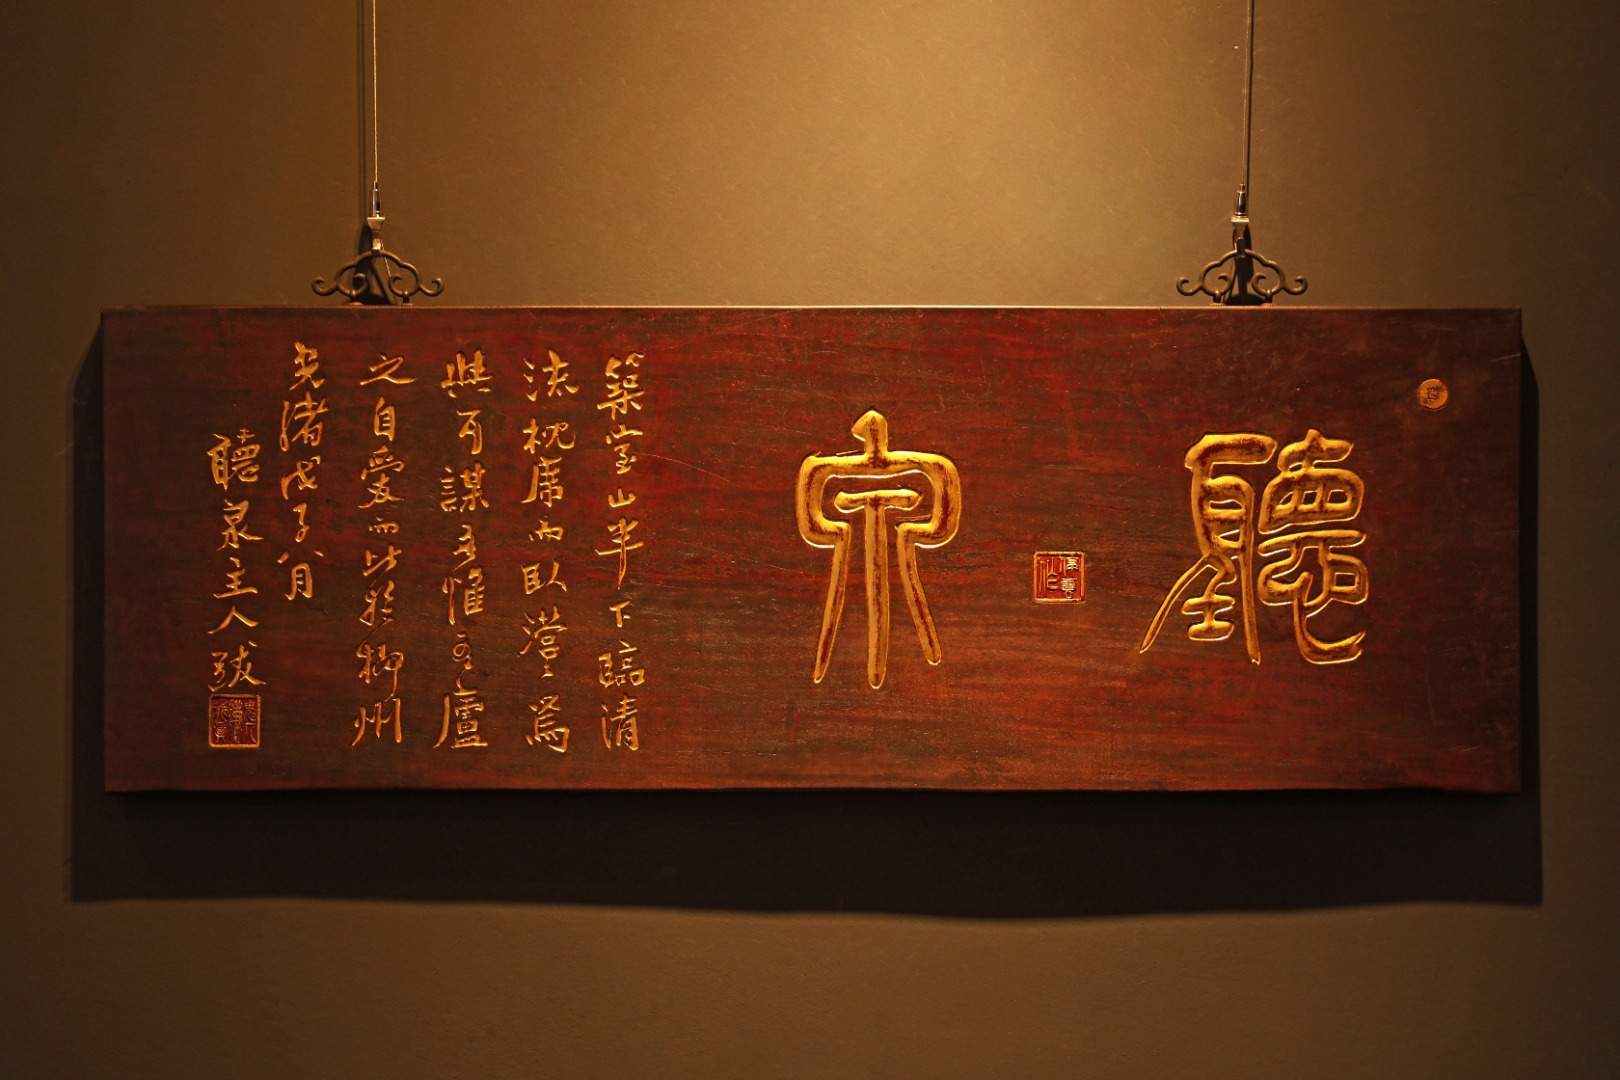 聽泉
築室山半下臨清
流枕席而臥瀯〻焉
與耳謀吾惟吾廬
之自愛而比於柳州
光緒戊子八月
聽泉主人跋